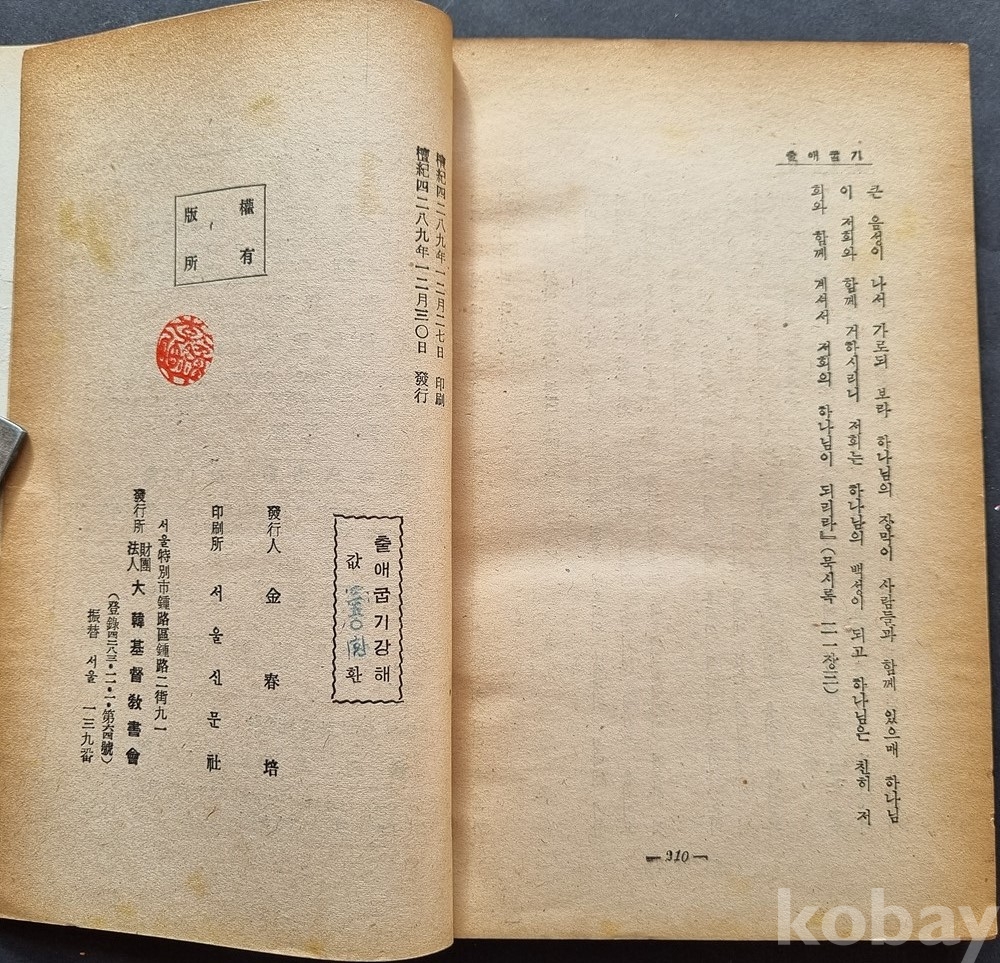 출애굽기
큰 음성이 나서 가로되 보라 하나님의 장막이 사람들과 함께 있으매 하나님
이 저희와 함께 거하시리니 저희는 하나님의 백성이 되고 하나님은 친히 저
희와 함께 계셔서 저희의 하나님이 되리라』(묵시록 二一장三)
— 310 —
檀紀四二八九年一二月二七日 印刷
檀紀四二八九年一二月三〇日 發行
權有
版所
출애굽기강해
값 환
發行人 金春培
印刷所 서울신문社
서울特別市鍾路區鍾路二街九一
發行所 財團法人 大韓基督敎書會
(登錄四二八三・一二・一・第六四號)
振替 서울 一三九番
kobay